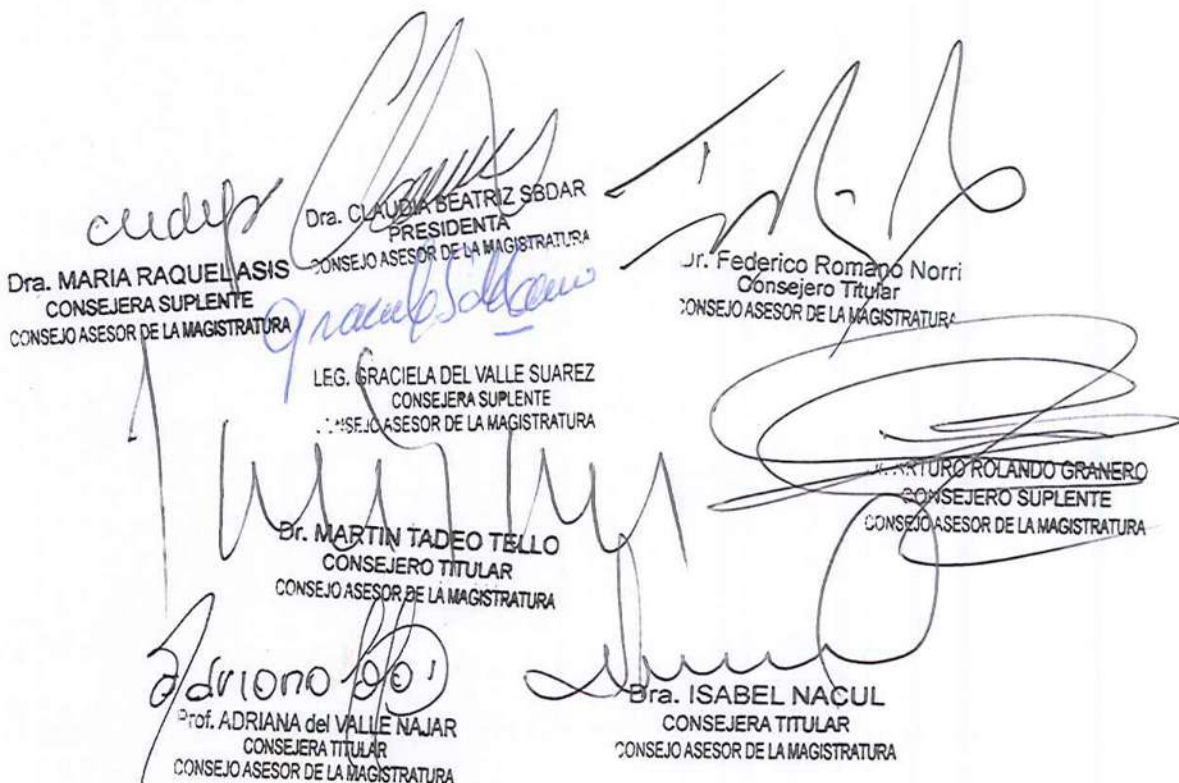 Dra. MARIA RAQUEL ASIS
CONSEJERA SUPLENTE
CONSEJO ASESOR DE LA MAGISTRATURA
Dra. CLAUDIA BEATRIZ SBDAR
PRESIDENTA
CONSEJO ASESOR DE LA MAGISTRATURA
Dr. Federico Romano Norri
Consejero Titular
CONSEJO ASESOR DE LA MAGISTRATURA
LEG. GRACIELA DEL VALLE SUAREZ
CONSEJERA SUPLENTE
CONSEJO ASESOR DE LA MAGISTRATURA
ARTURO ROLANDO GRANERO
CONSEJERO SUPLENTE
CONSEJO ASESOR DE LA MAGISTRATURA
Dr. MARTIN TADEO TELLO
CONSEJERO TITULAR
CONSEJO ASESOR DE LA MAGISTRATURA
Prof. ADRIANA del VALLE NAJAR
CONSEJERA TITULAR
CONSEJO ASESOR DE LA MAGISTRATURA
Dra. ISABEL NACUL
CONSEJERA TITULAR
CONSEJO ASESOR DE LA MAGISTRATURA